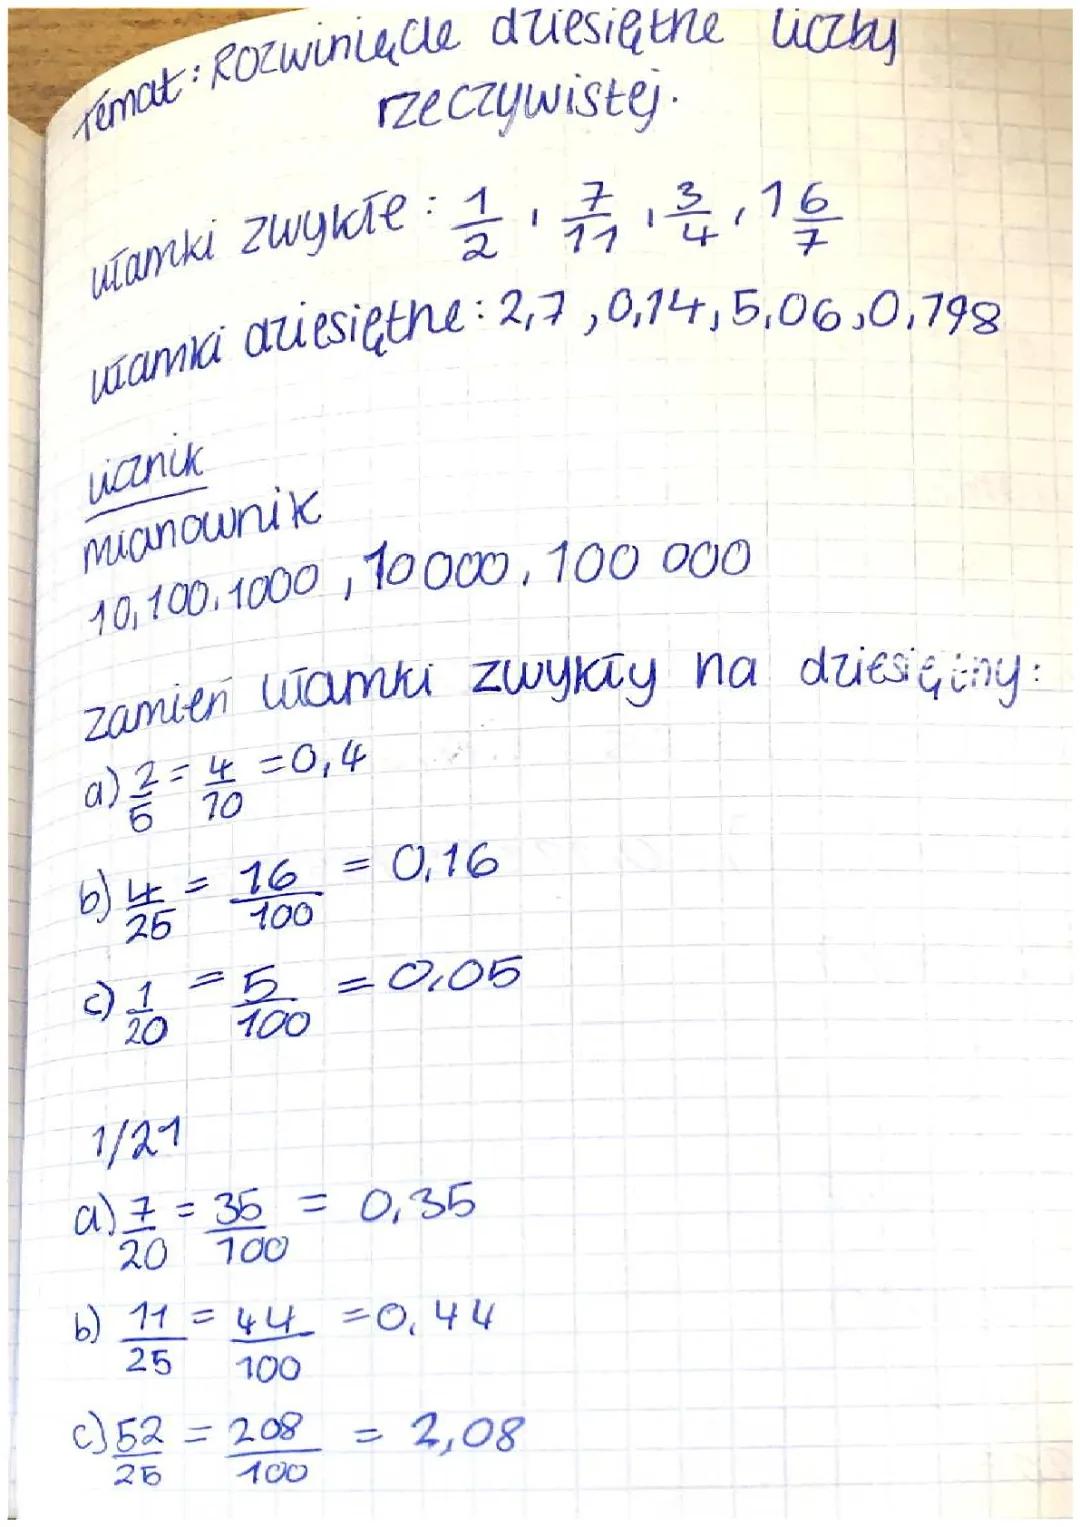 Temat: Rozwinięcie dziesiętne liczby
rzeczywistej.
ułamki zwykłe: 1/2, 7/11, 3/4, 1 6/7
ułamki dziesiętne: 2,7, 0,14, 5,06, 0,798
licznik
mianownik
10, 100, 1000, 10000, 100 000
zamień ułamki zwykły na dziesiętny:
a) 2/5 = 4/10 = 0,4
b) 4/25 = 16/100 = 0,16
c) 1/20 = 5/100 = 0,05
1/21
a) 7/20 = 35/100 = 0,35
b) 11/25 = 44/100 = 0,44
c) 52/25 = 208/100 = 2,08